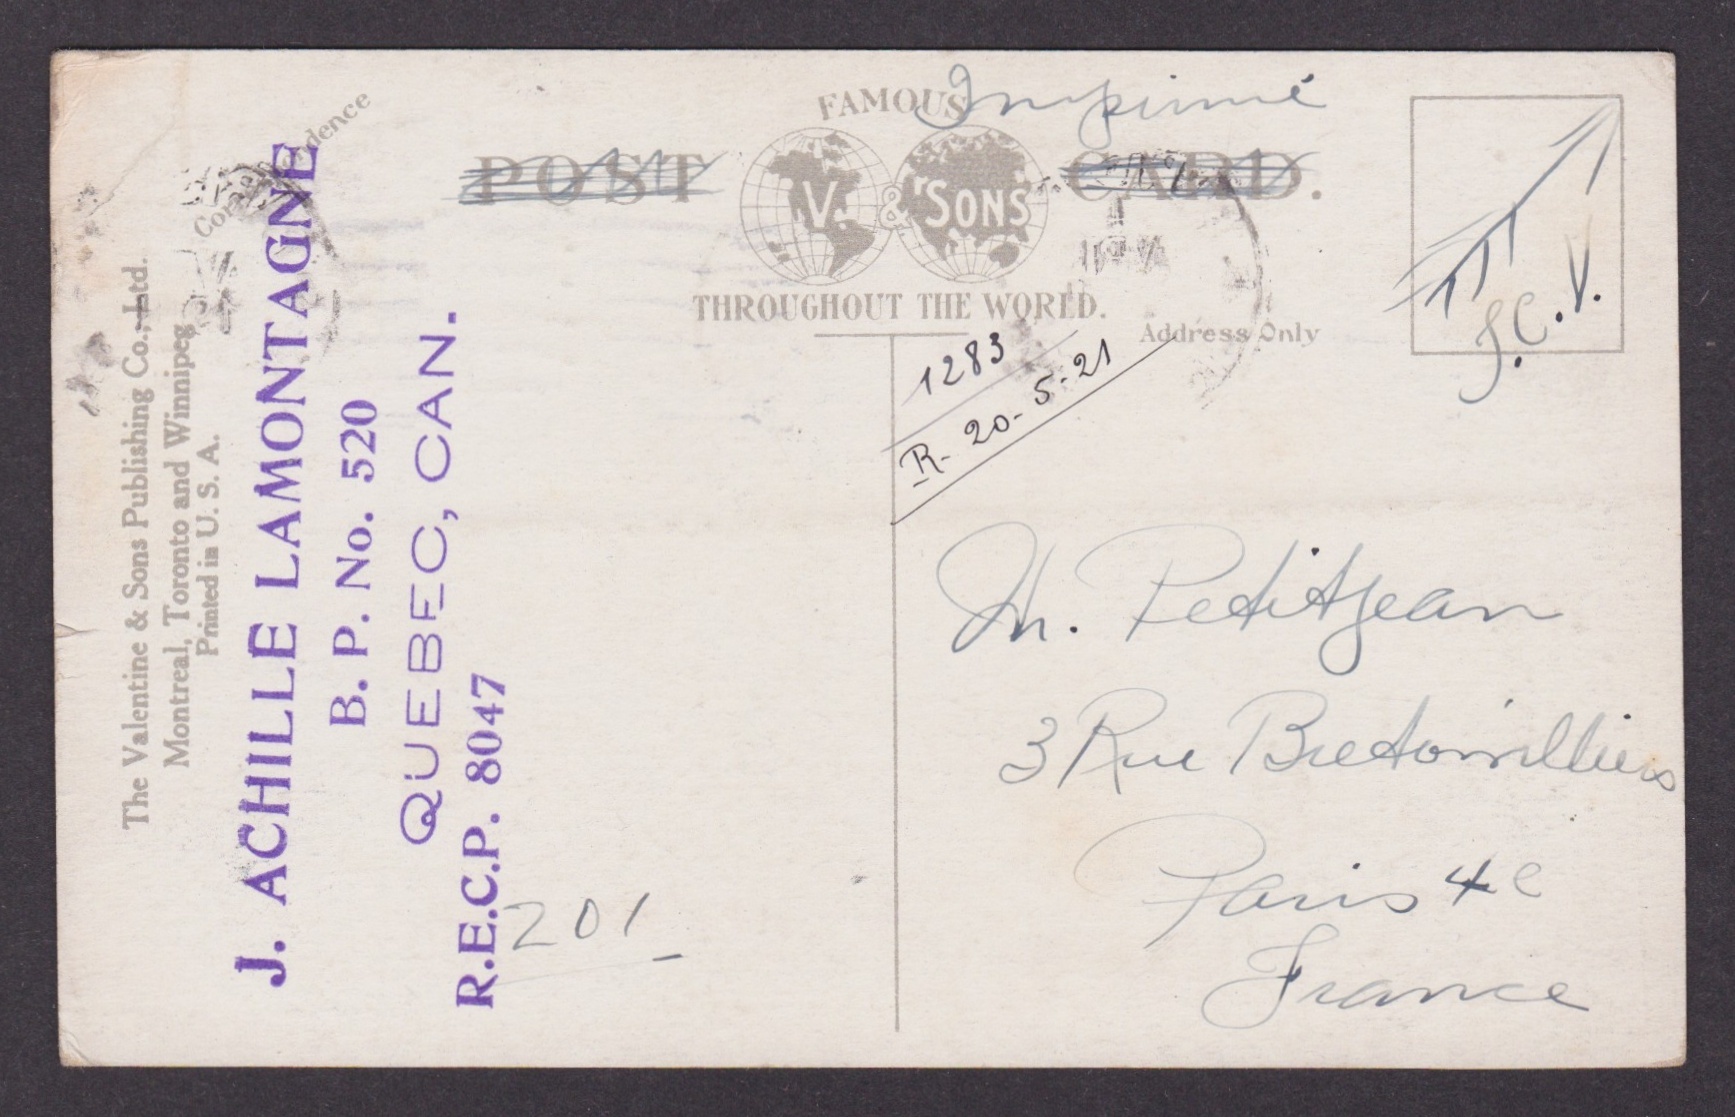 The Valentine & Sons Publishing Co., Ltd.
Montreal, Toronto and Winnipeg
Printed in U. S. A.
J. ACHILLE LAMONTAGNE
B. P. No. 520
QUEBEC, CAN.
R.E.C.P. 8047
201
FAMOUS
Imprimé
POST CARD.
V. & SONS
THROUGHOUT THE WORLD.
Address Only
T.C.V.
1283
R- 20-5-21
M. Petitjean
3 Rue Bretonvilliers
Paris 4e
France